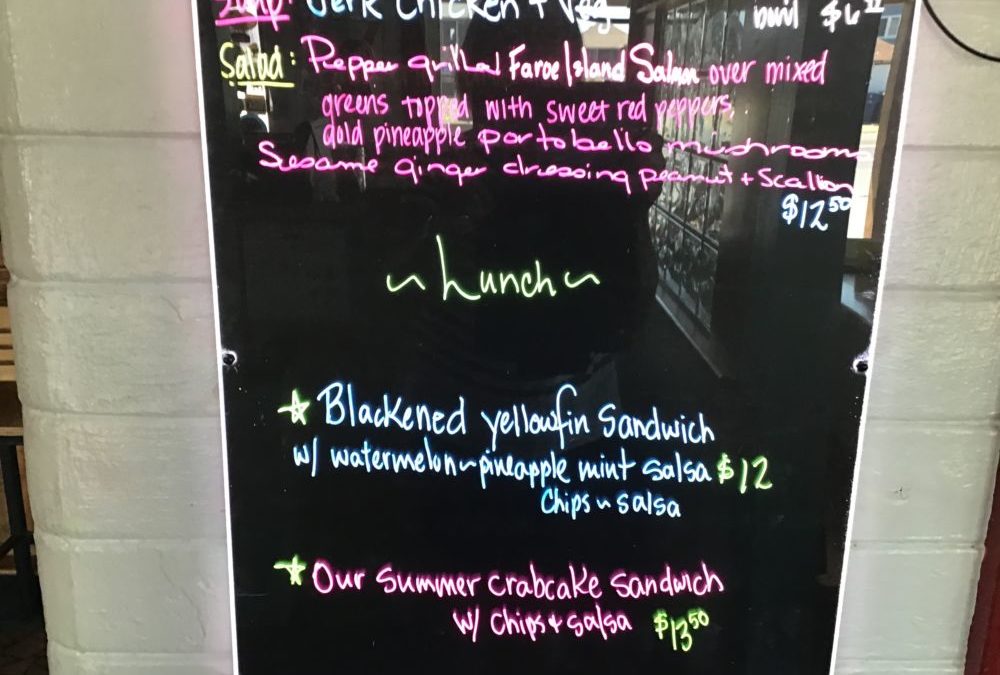 Soup: Jerk Chicken + Veg
bowl $6
Salad: Pepper grilled Faroe Island Salmon over mixed
greens topped with sweet red peppers,
gold pineapple portobello mushrooms
Sesame ginger dressing peanut + Scallion
$12.50
~ Lunch ~
☆ Blackened yellowfin Sandwich
w/ watermelon~pineapple mint salsa $12
Chips ~ salsa
☆ Our Summer Crabcake Sandwich
w/ Chips + salsa $13.50